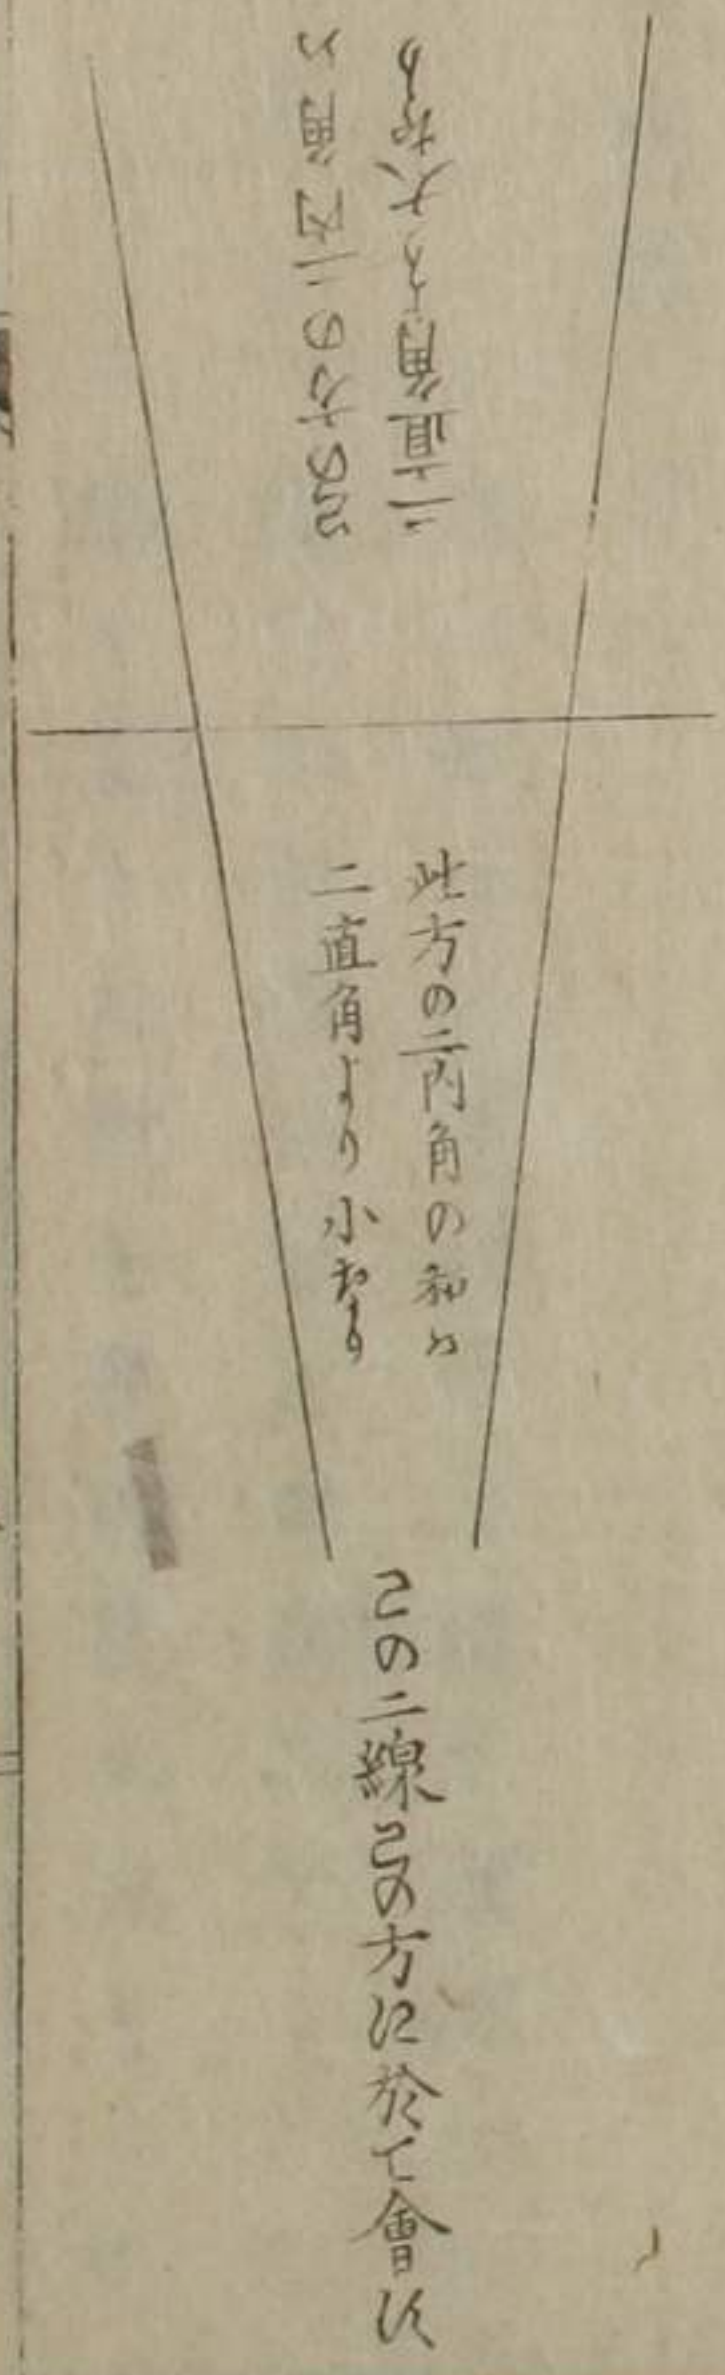 この方の二内角ハ
二直角より大なり
此方の二内角の和ハ
二直角より小なり
この二線この方に於て會す